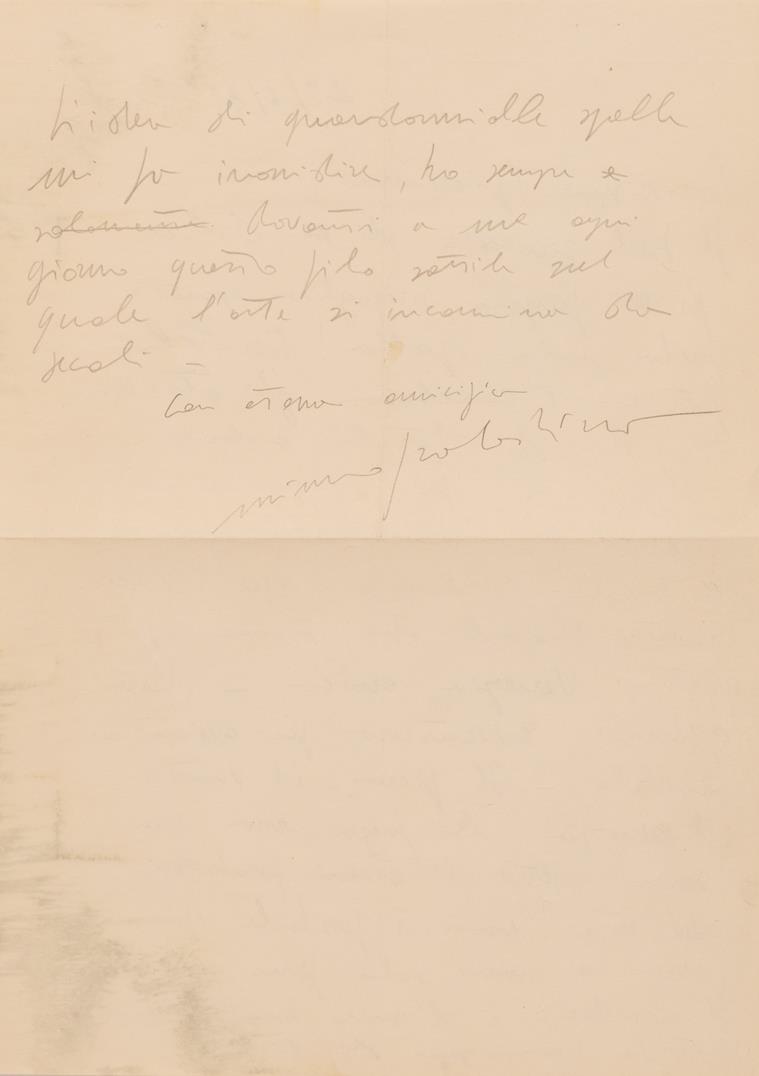 L'idea di guardarmi alle spalle
mi fa inorridire, ho sempre e
solamente davanti a me ogni
giorno questo filo sottile sul
quale l'arte si incammina da
secoli –
Con eterna amicizia
mimmo paladino